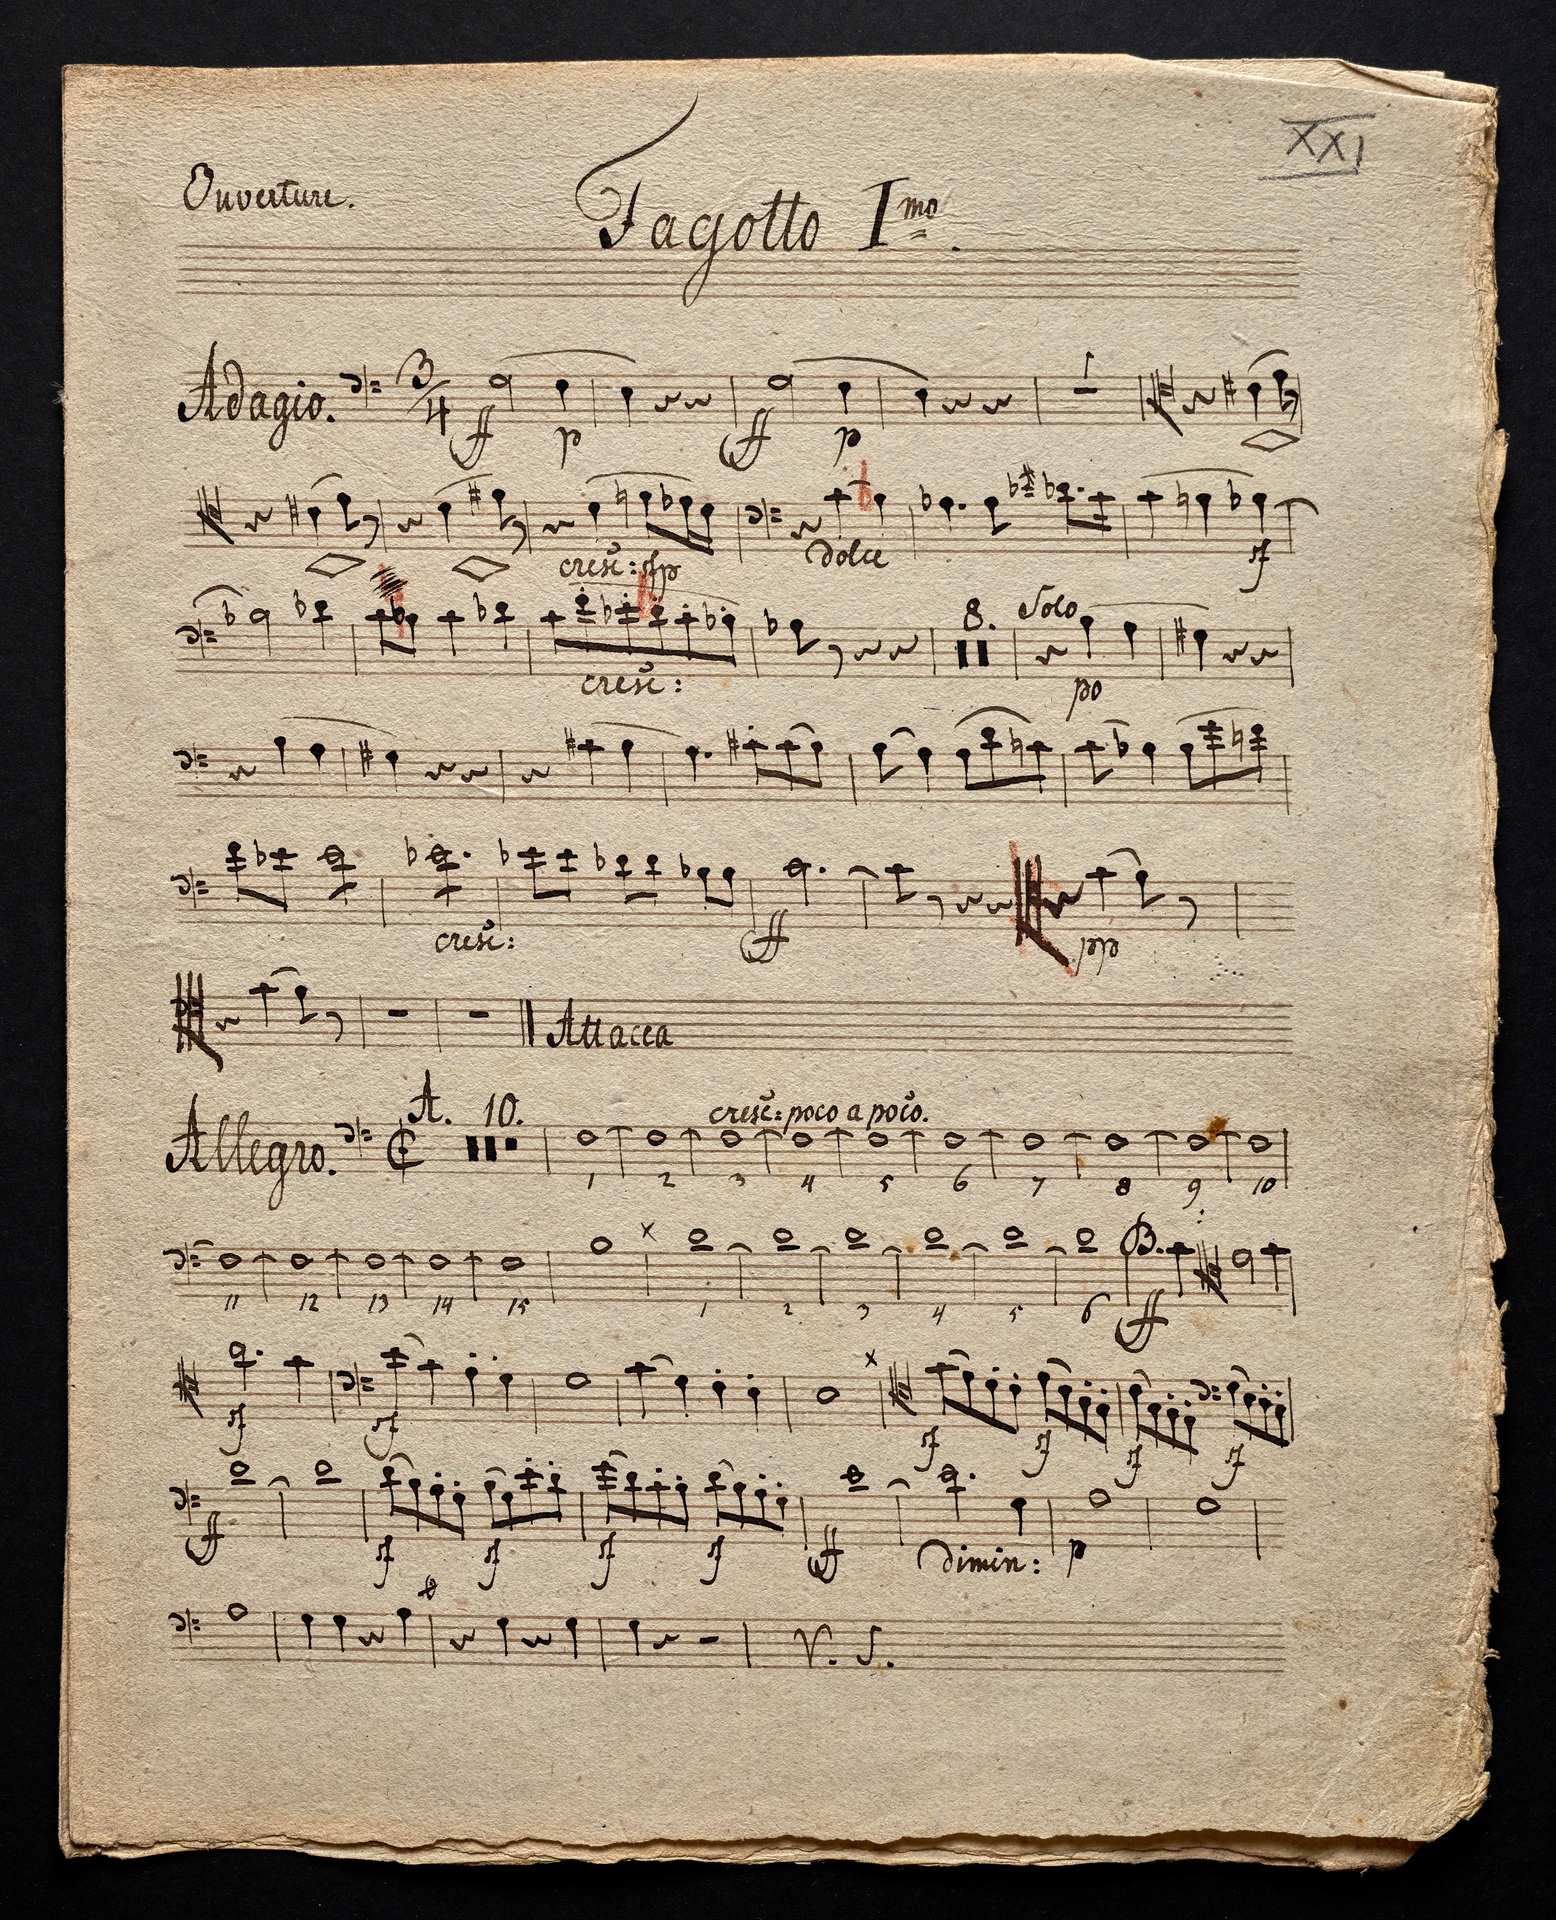 XXI
Ouverture.
Fagotto I^mo.
Adagio. 3/4
ff p ff p
cresc: sfp dolce sf
8. Solo
cresc: po
cresc: ff pp
Attacca
A. 10. cresc: poco a poco.
Allegro.
1 2 3 4 5 6 7 8 9 10
B.
11 12 13 14 15 1 2 3 4 5 6 ff
sf sf sf sf sf sf
ff sf sf sf sf ff dimin: p
V. S.